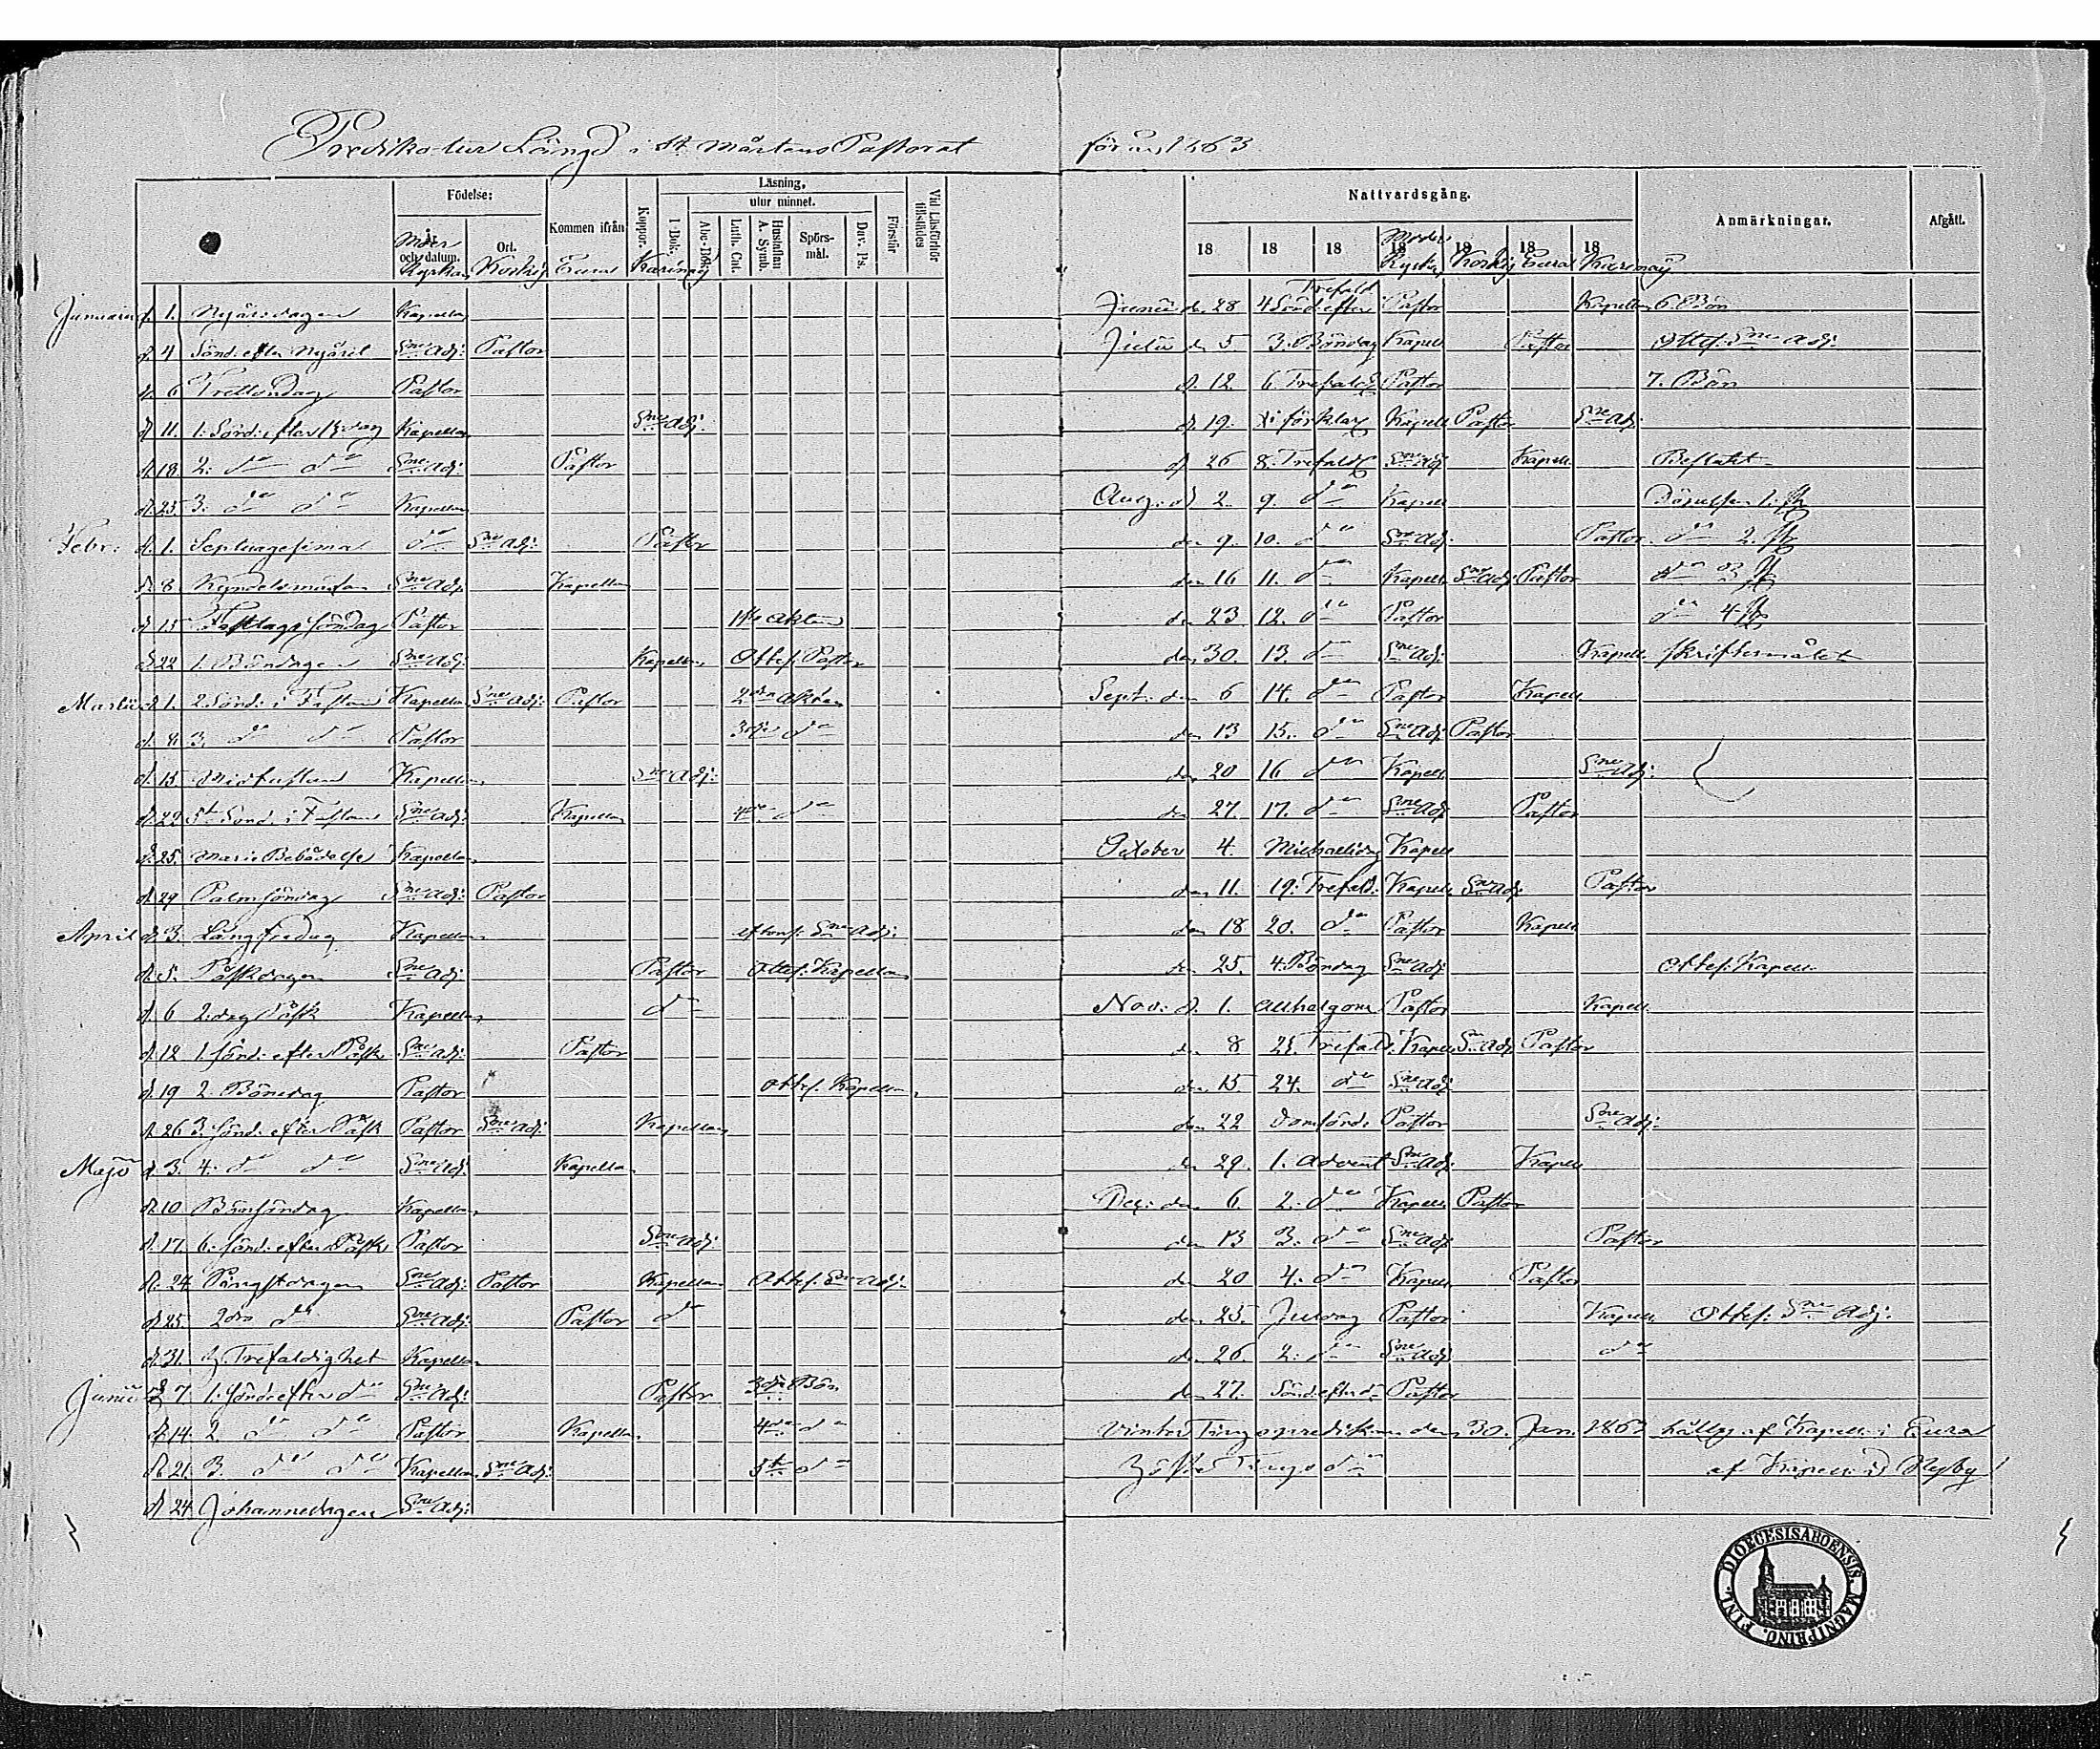 Prediko-tur Längd i St Mårtens Pastorat för år 1863
Födelse: Kommen ifrån Koppor. Läsning, Vid Läsförhör tillstädes
I Bok. utur minnet. Förstår
År och datum. Ort. Abc-Bok. Luth. Cat. Hustaflan A. Symb. Spörsmål. Dav. Ps.
Moder Kyrkan Koskis Eura Karinais
Januarii d. 1. Nyårsdagen Kapellan
d. 4 Sönd. efter Nyåret Sne Adj: Pastor
d. 6 Trettondag Pastor
d. 11. 1. Sönd. efter 13 dag Kapellan Sne Adj.
d. 18 2. do do Sne Adj: Pastor
d. 25 3. do do Kapellan
Febr: d. 1. Septuagesima do Sne Adj: Pastor
d. 8 Kyndelsmässan Sne Adj. Kapellan
d. 15 Fastlags söndag Pastor 1sta akten
d. 22 1. Böndagen Sne Adj: Kapellan Ottes. Pastor
Martii d. 1. 2 Sönd. i Fastan Kapellan Sne Adj: Pastor 2dra akten
d. 8. 3. do do Pastor 3dje do
d. 15 Midfastan Kapellan Sne Adj:
d. 22 5te Sönd. i Fastan Sne Adj: Kapellan 4de do
d. 25. Marie Bebådelse Kapellan
d. 29 Palmsöndag Sne Adj: Pastor
April d. 3. Långfredag Kapellan aftons. Sne Adj:
d. 5. Påskdagen Sne Adj: Pastor Ottes. Kapellan
d. 6 2. dag Påsk Kapellan do
d. 12 1. sönd. efter Påsk Sne Adj: Pastor
d. 19 2. Bönedag Pastor Ottes. Kapellan
d. 26 3. sönd. efter Påsk Pastor Sne Adj: Kapellan
Maji d. 3. 4. do do Sne Adj. Kapellan
d. 10 Bönsöndag Kapellan
d. 17. 6. sönd. efter Påsk Pastor Sne Adj:
d. 24 Pingstdagen Sne Adj: Pastor Kapellan Ottes. Sne Adj:
d. 25 2dra do Sne Adj: Pastor do
d. 31. H. Trefaldighet Kapellan
Junii d. 7 1. sönd. efter do Sne Adj: Pastor 3dje Bön
d. 14. 2. do do Pastor Kapellan 4de do
d. 21. 3. do do Kapellan Sne Adj: 5te do
d. 24 Johannedagen Sne Adj:
Nattvardsgång. Anmärkningar. Afgått.
18 18 18 18 18 18 18
Moder Kyrkan Koskis Eura Karinais
Junii d. 28 4 Sönd. efter Trefald Pastor Kapellan 6. Bön
Julii d. 5. 3. Böndag Kapell Pastor Ottes. Sne Adj.
d. 12. 6. Trefald Pastor 7. Bön
d. 19. Xi förklar Kapell Pastor Sne Adj:
d. 26 8. Trefald Sne Adj Kapell
Aug: d. 2. 9. do Kapell
den 9. 10. do Sne Adj: Pastor do 2. st
den 16 11. do Kapell Sne Adj: Pastor do 3 st
den 23 12. do Pastor do 4 st
den 30. 13. do Sne Adj: Kapell. skriftermålet
Sept: den 6 14. do Pastor Kapell
den 13 15. do Sne Adj Pastor
den 20 16 do Kapell Sne Adj:
den 27. 17. do Sne Adj Pastor
October 4. Michaelidag Kapell
den 11. 19. Trefald: Kapell Sne Adj: Pastor
den 18 20. do Pastor Kapell
den 25. 4. Böndag Sne Adj Ottes. Kapell.
Nov: d. 1. Allhelgona Pastor Kapell.
den 8 23. Trefald. Kapell Sne Adj Pastor
den 15 24. do Sne Adj
den 22 Domsönd. Pastor Sne Adj:
den 29. 1. Advent Sne Adj. Kapell
Dec: den 6. 2. do Kapell Pastor
den 13 3. do Sne Adj Pastor
den 20 4. do Kapell Pastor
den 25. Juldag Pastor Kapell. Ottes. Sne Adj:
den 26. 2. do Sne Adj do
den 27. Sönd. efter do Pastor
Vinter Tings predikan den 30. Jan. 1863 hålles af Kapell. i Eura
Höste Tings do af Kapell. i
DIOECESIS ABOENSIS. MAGNI PRINC. FINL.